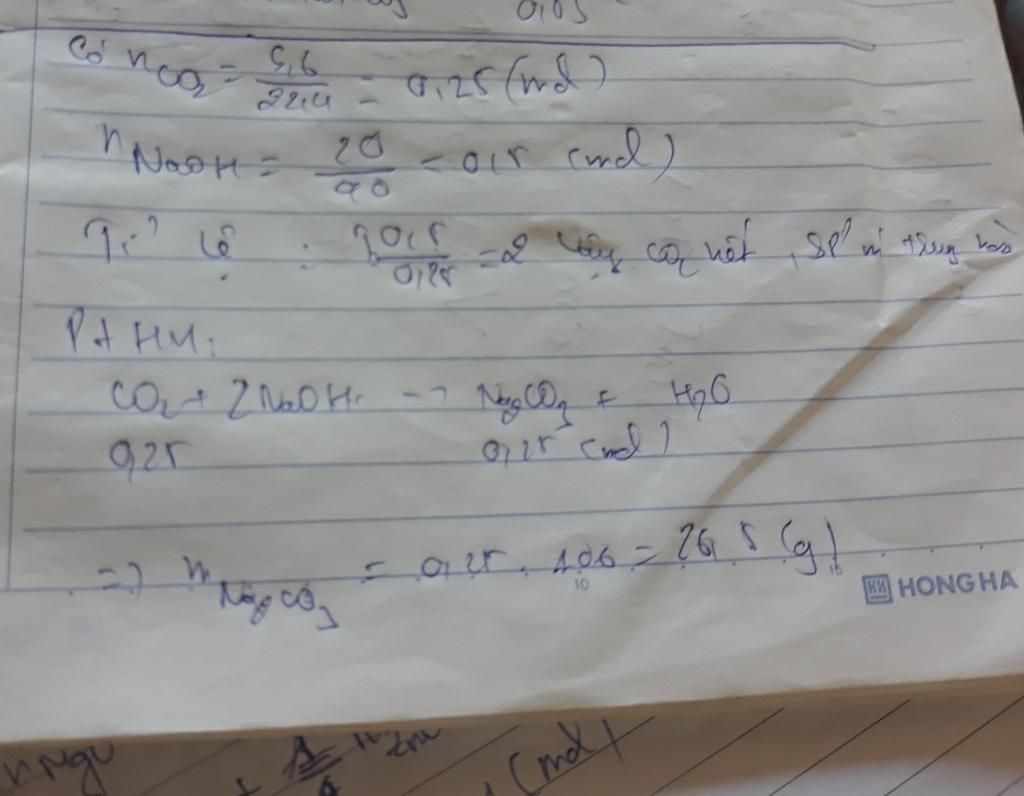 0,05
Có nCO2 = 5,6/22,4 = 0,25 (mol)
nNaOH = 20/40 = 0,5 (mol)
Tỉ lệ : 0,5/0,25 = 2 CO2 hết, SP là trung hoà
PTHH:
CO2 + 2NaOH -> Na2CO3 + H2O
0,25 0,25 (mol)
=> mNa2CO3 = 0,25 . 106 = 26,5 (g)
10 15
HONG HA
(mol)